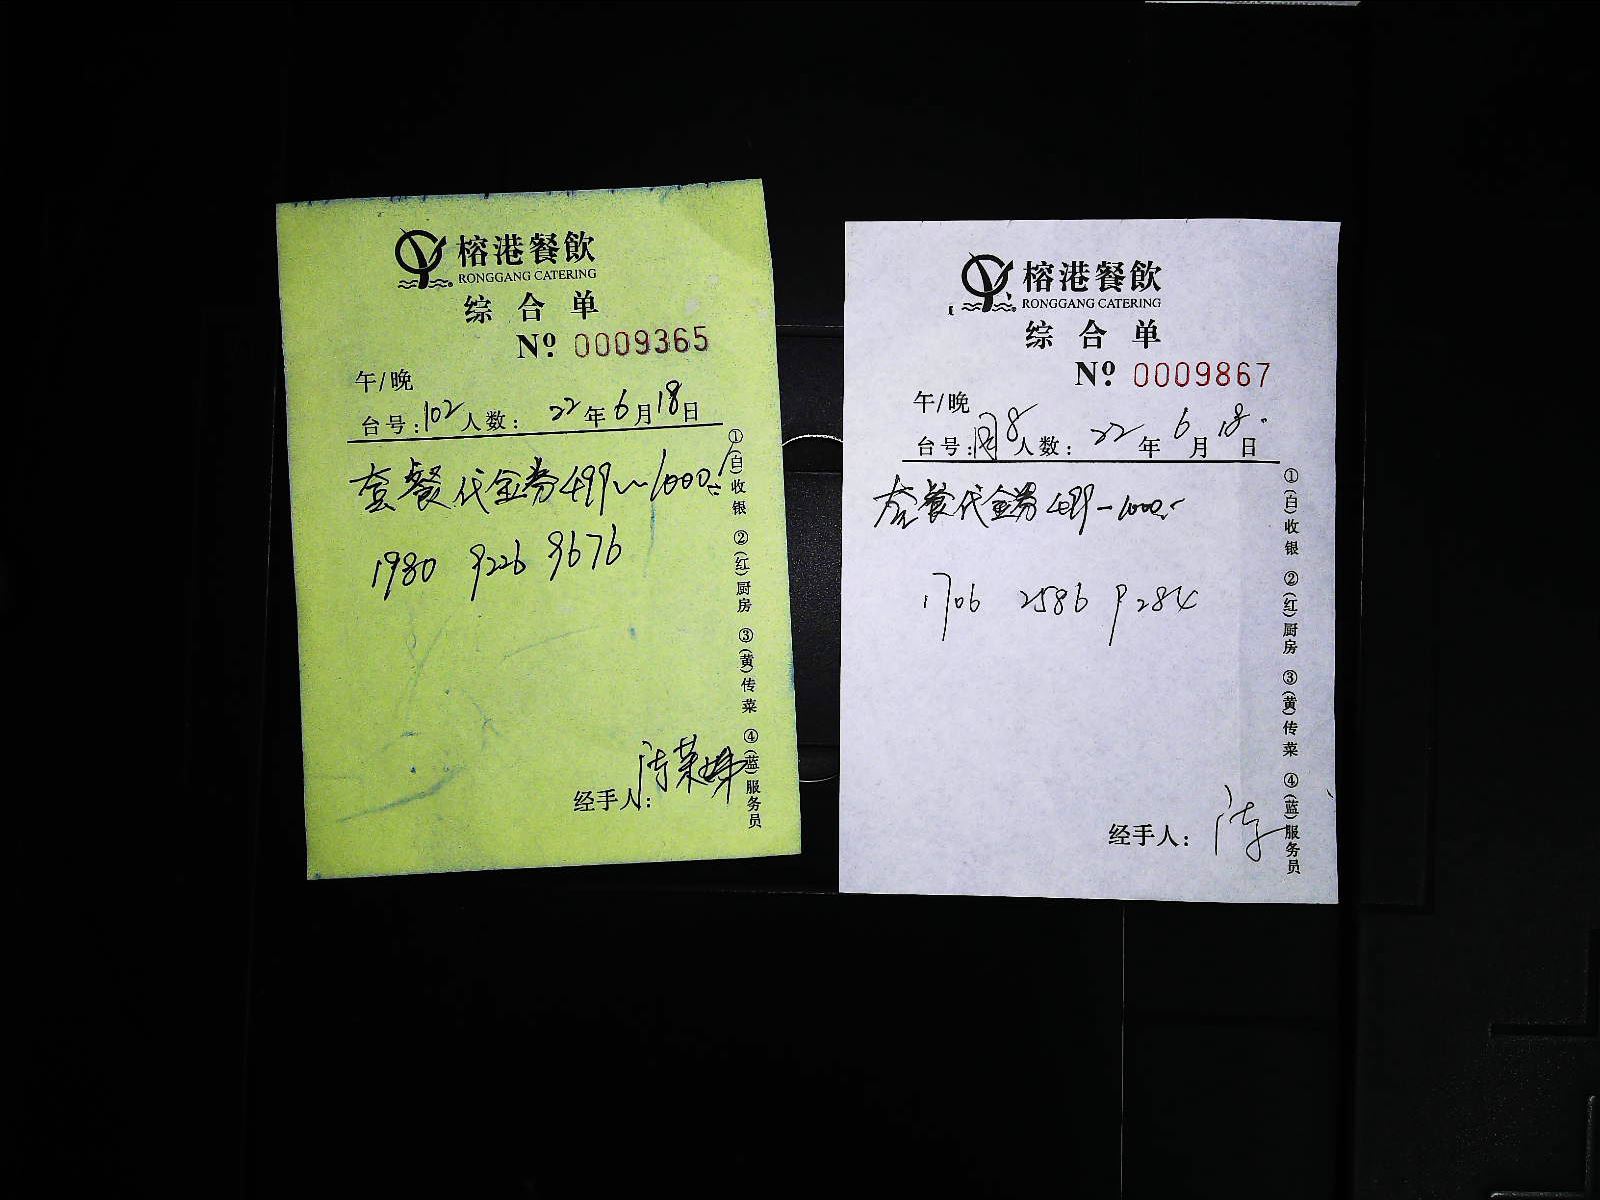 榕港餐飲
RONGGANG CATERING
综合单
Nº 0009365
午/晚
台号:102人数: 22年6月18日
套餐代金券499~1000元
1980 9226 9676
经手人:
①(白)收银 ②(红)厨房 ③(黄)传菜 ④(蓝)服务员
榕港餐飲
RONGGANG CATERING
综合单
Nº 0009867
午/晚
台号: 8人数: 22年6月18日
套餐代金券499-1000
1706 2586 9284
经手人:
①(白)收银 ②(红)厨房 ③(黄)传菜 ④(蓝)服务员